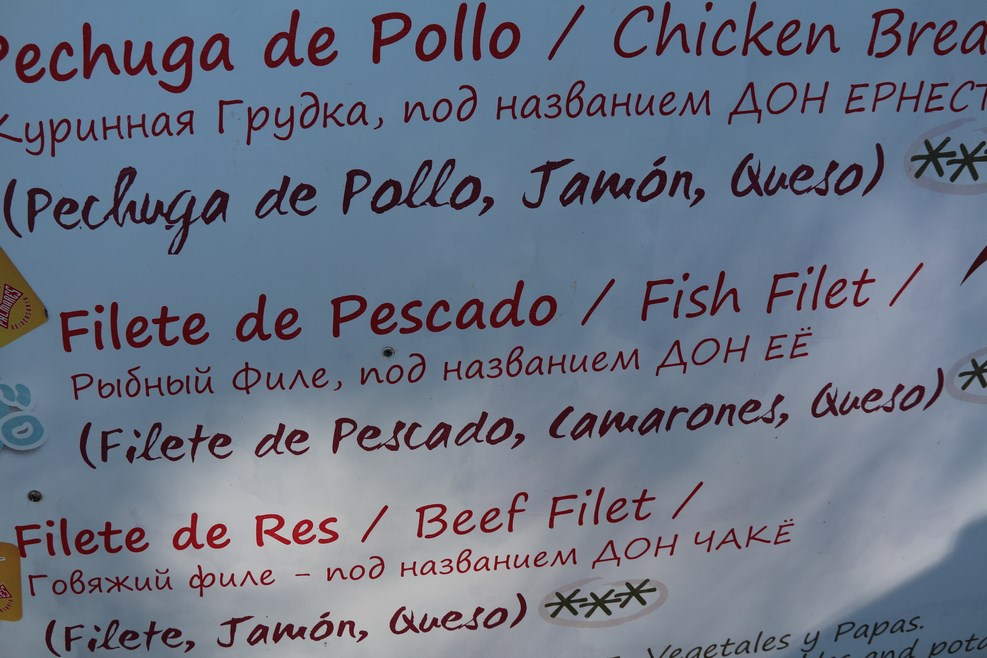 Pechuga de Pollo / Chicken Brea
Куринная Грудка, под названием ДОН ЕРНЕСТ
(Pechuga de Pollo, Jamón, Queso) **
Filete de Pescado / Fish Filet /
Рыбный Филе, под названием ДОН ЕЁ
(Filete de Pescado, Camarones, Queso) *
Filete de Res / Beef Filet /
Говяжий филе – под названием ДОН ЧАКЁ
(Filete, Jamón, Queso) ***
Vegetales y Papas.
and pota